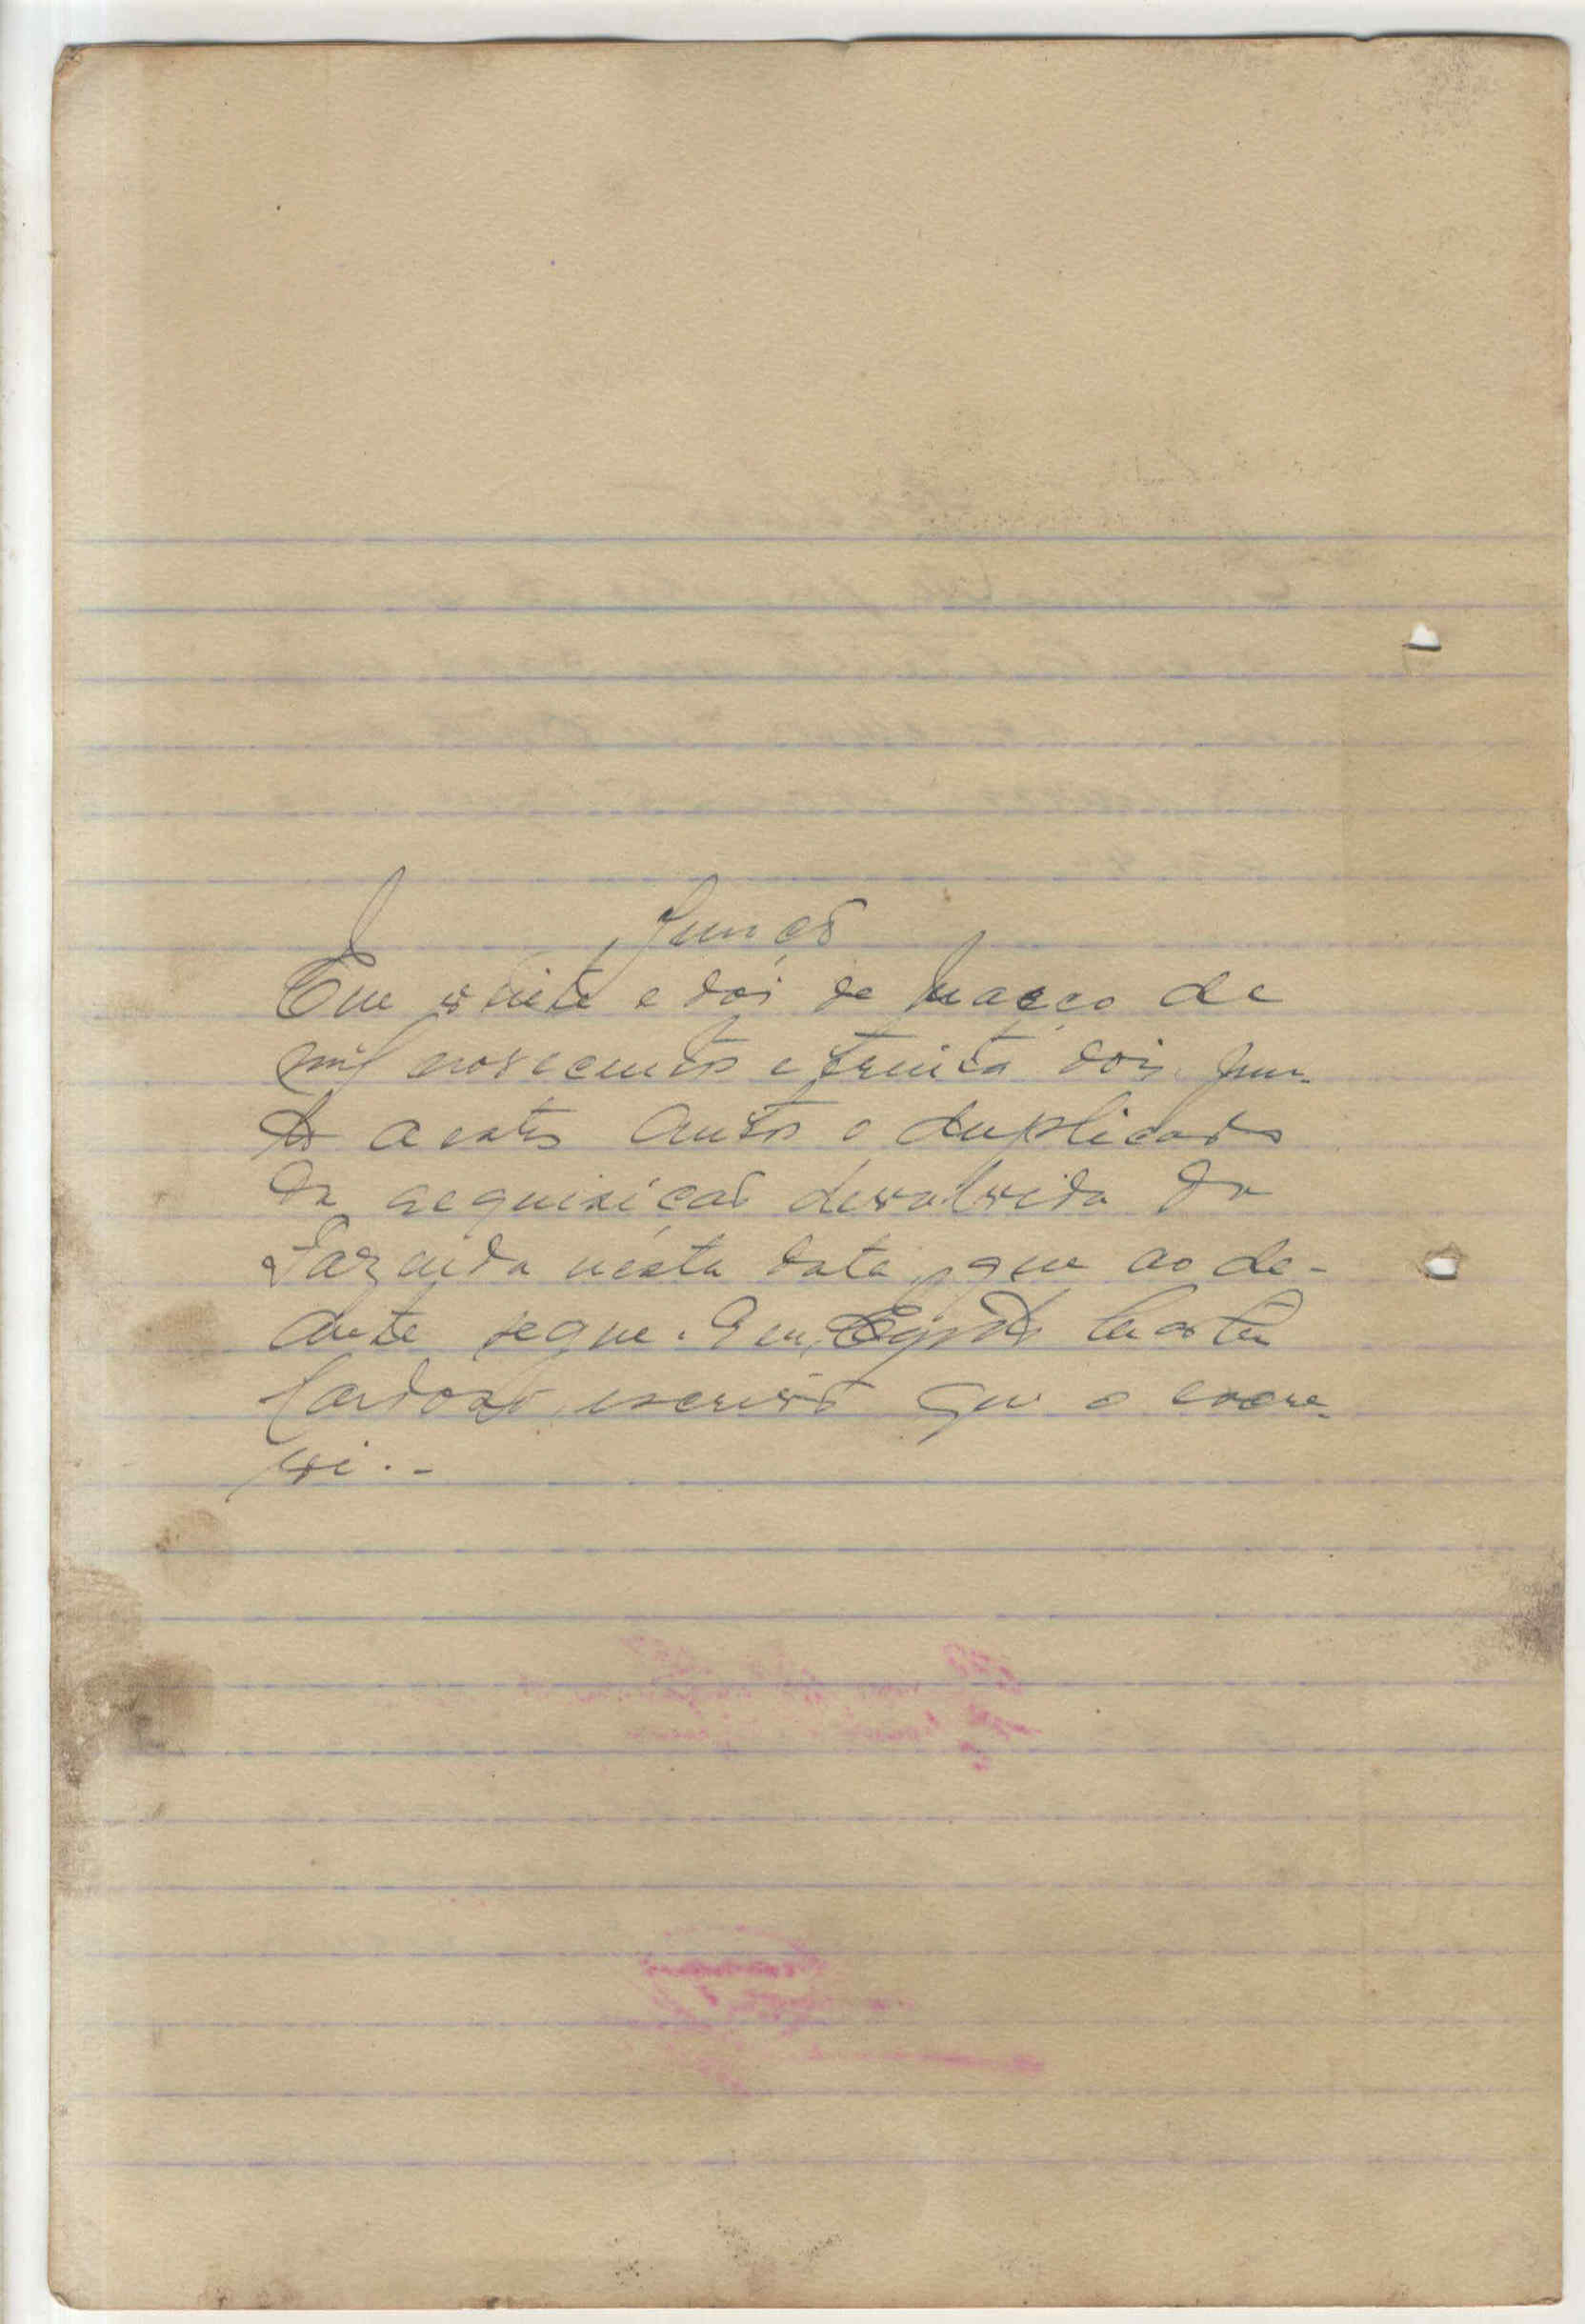 Junção
Em vinte e doi de março de
mil novecentos e trinta dois jun-
to a estes autos o duplicado
da requisicão devolvida da
Fazenda nesta data, que ao de-
ante segue. Eu, Egydio
Cardozo, escrivão que o escre-
vi.-